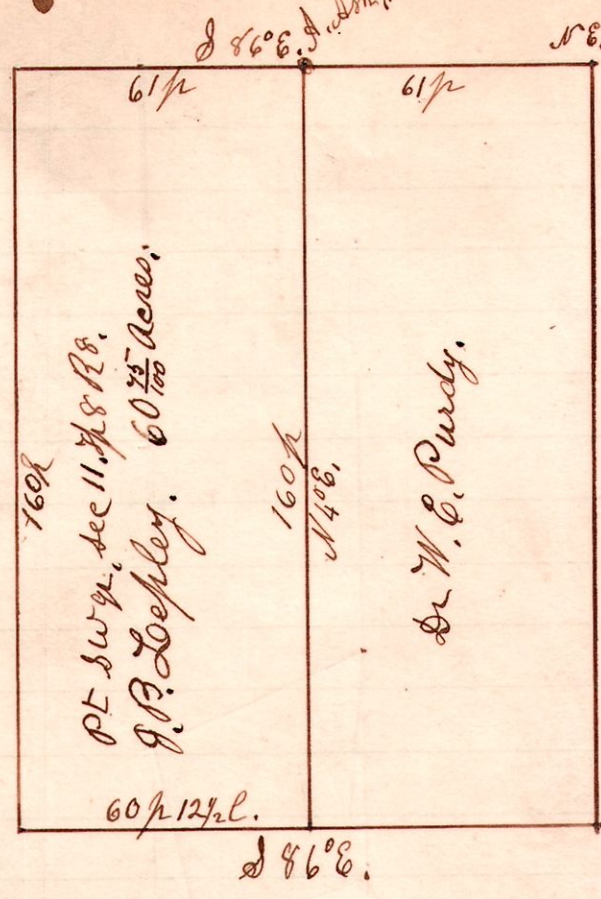 S 86° E.
61 p
61 p
160 p
Pt S W qr. Sec 11. Tp 8 R 8.
J. B. Lepley. 60 75/100 Acres.
160 p
N 4° E.
Dr W. E. Purdy.
60 p 12 1/2 l.
S 86° E.